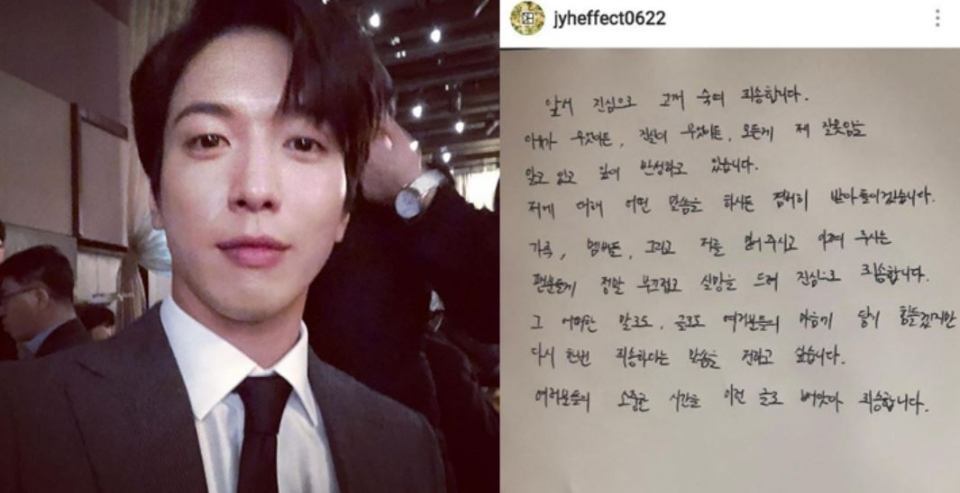 jyheffect0622
앞서 진심으로 고개 숙여 죄송합니다.
이유가 무엇이든, 진실이 무엇이든, 모든게 제 잘못임을
알고 있고 깊이 반성하고 있습니다.
저에 대해 어떤 말씀을 하시든 겸허히 받아들이겠습니다.
가족, 멤버들, 그리고 저를 믿어주시고 아껴 주시는
팬분들께 정말 부끄럽고 실망을 드려 진심으로 죄송합니다.
그 어떠한 말로도, 글로도 여러분들의 마음이 당시 힘들겠지만
다시 한번 죄송하다는 말씀을 전하고 싶습니다.
여러분들의 소중한 시간을 이런 글로 뺏았다 죄송합니다.